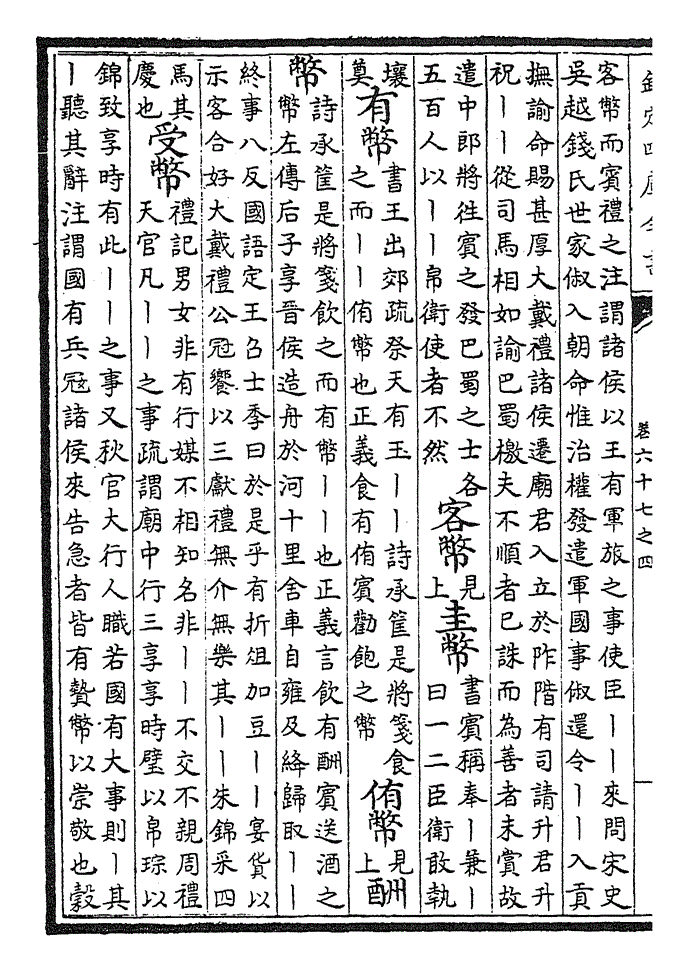 欽定四庫全書
卷六十七之四
客幣而賓禮之注謂諸侯以王有軍旅之事使臣丨丨來問宋史
吳越錢氏世家俶入朝命惟治權發遣軍國事俶還令丨丨入貢
撫諭命賜甚厚大戴禮諸侯遷廟君入立於阼階有司請升君升
祝丨丨從司馬相如諭巴蜀檄夫不順者已誅而為善者未賞故
遣中郎將徃賓之發巴蜀之士各
五百人以丨丨帛衛使者不然
客幣
見
上
圭幣
書賓稱奉丨兼丨
曰一二臣衛敢執
壤
奠
有幣
書王出郊疏祭天有玉丨丨詩承筐是將箋食
之而丨丨侑幣也正義食有侑賓勸飽之幣
侑幣
見
上
酬
幣
詩承筐是將箋飲之而有幣丨丨也正義言飲有酬賓送酒之
幣左傳后子享晉侯造舟於河十里舍車自雍及絳歸取丨丨
終事八反國語定王召士季曰於是乎有折俎加豆丨丨宴貨以
示客合好大戴禮公冠饗以三獻禮無介無樂其丨丨朱錦采四
馬其
慶也
受幣
禮記男女非有行媒不相知名非丨丨不交不親周禮
天官凡丨丨之事疏謂廟中行三享享時璧以帛琮以
錦致享時有此丨丨之事又秋官大行人職若國有大事則丨其
丨聽其辭注謂國有兵寇諸侯來告急者皆有贄幣以崇敬也穀